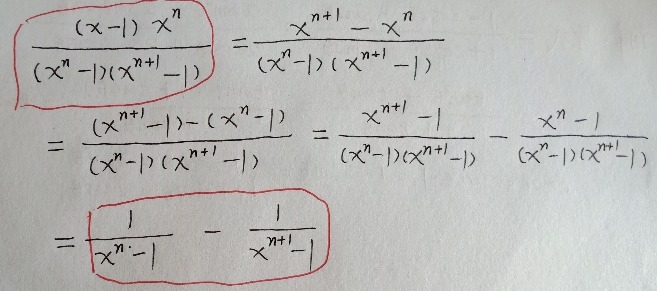 \frac{(x-1) x^n}{(x^n-1)(x^{n+1}-1)} = \frac{x^{n+1} - x^n}{(x^n-1)(x^{n+1}-1)}
= \frac{(x^{n+1}-1)-(x^n-1)}{(x^n-1)(x^{n+1}-1)} = \frac{x^{n+1}-1}{(x^n-1)(x^{n+1}-1)} - \frac{x^n-1}{(x^n-1)(x^{n+1}-1)}
= \frac{1}{x^n-1} - \frac{1}{x^{n+1}-1}